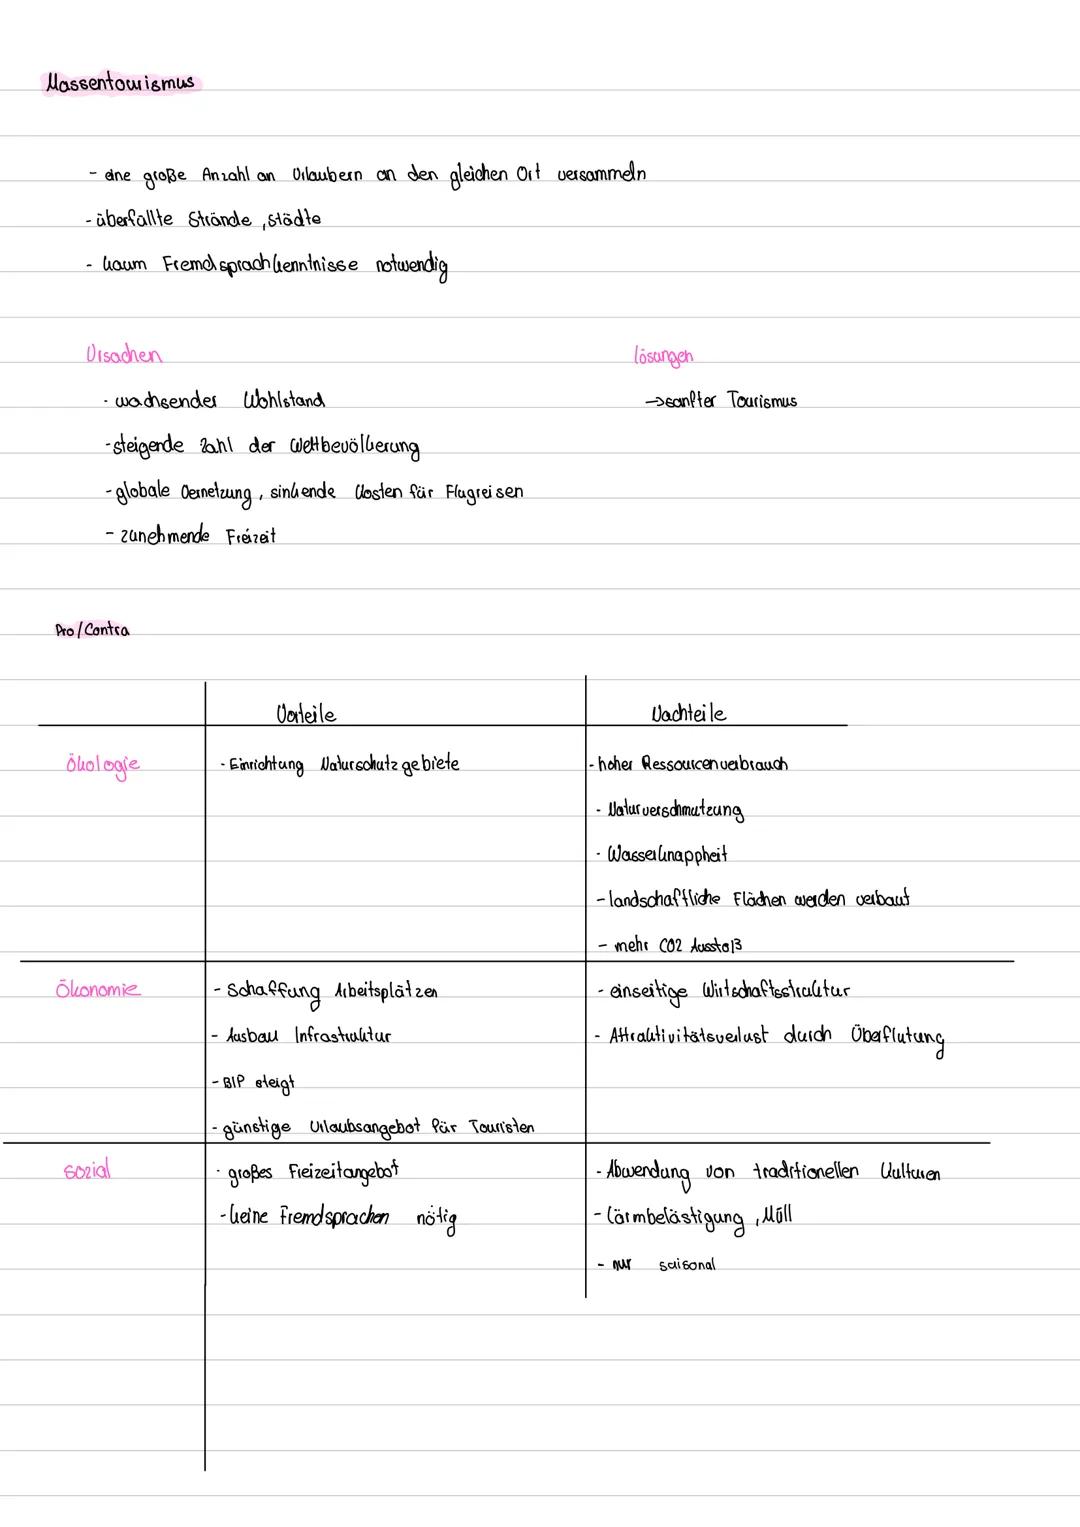 Massentourismus
- eine große Anzahl an Urlaubern an den gleichen Ort versammeln
- überfüllte Strände, Städte
- kaum Fremdsprachkenntnisse notwendig
Ursachen
Lösungen
- wachsender Wohlstand
→ sanfter Tourismus
- steigende Zahl der Weltbevölkerung
- globale Vernetzung, sinkende Kosten für Flugreisen
- zunehmende Freizeit
Pro/Contra
Vorteile
Nachteile
Ökologie
- Einrichtung Naturschutzgebiete
- hoher Ressourcenverbrauch
- Naturverschmutzung
- Wasserknappheit
- landschaftliche Flächen werden verbaut
- mehr CO2 Ausstoß
Ökonomie
- Schaffung Arbeitsplätzen
- einseitige Wirtschaftsstruktur
- Ausbau Infrastruktur
- Attraktivitätsverlust durch Überflutung
- BIP steigt
- günstige Urlaubsangebot für Touristen
sozial
- großes Freizeitangebot
- Abwendung von traditionellen Kulturen
- keine Fremdsprachen nötig
- Lärmbelästigung, Müll
- nur saisonal